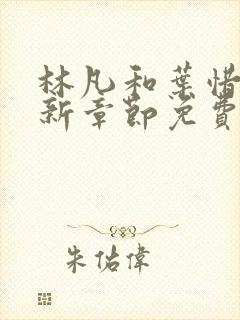 林凡和葉惜
新章節免費
朱佑偉